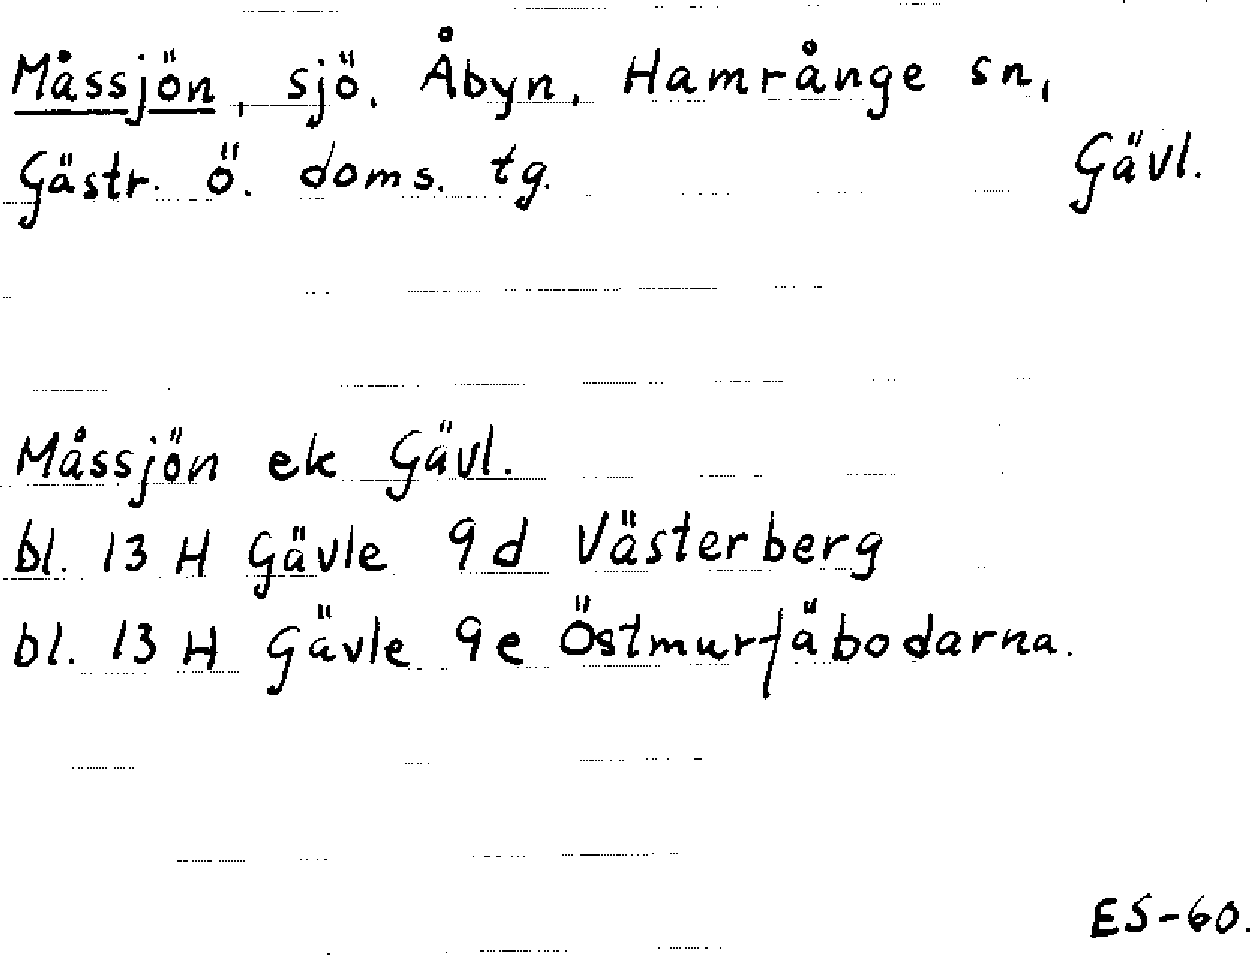 Måssjön, sjö. Åbyn, Hamrånge sn,
Gästr. ö. doms. tg. Gävl.
Måssjön ek Gävl.
bl. 13 H Gävle 9d Västerberg
bl. 13 H Gävle 9e Östmurfäbodarna.
ES-60.